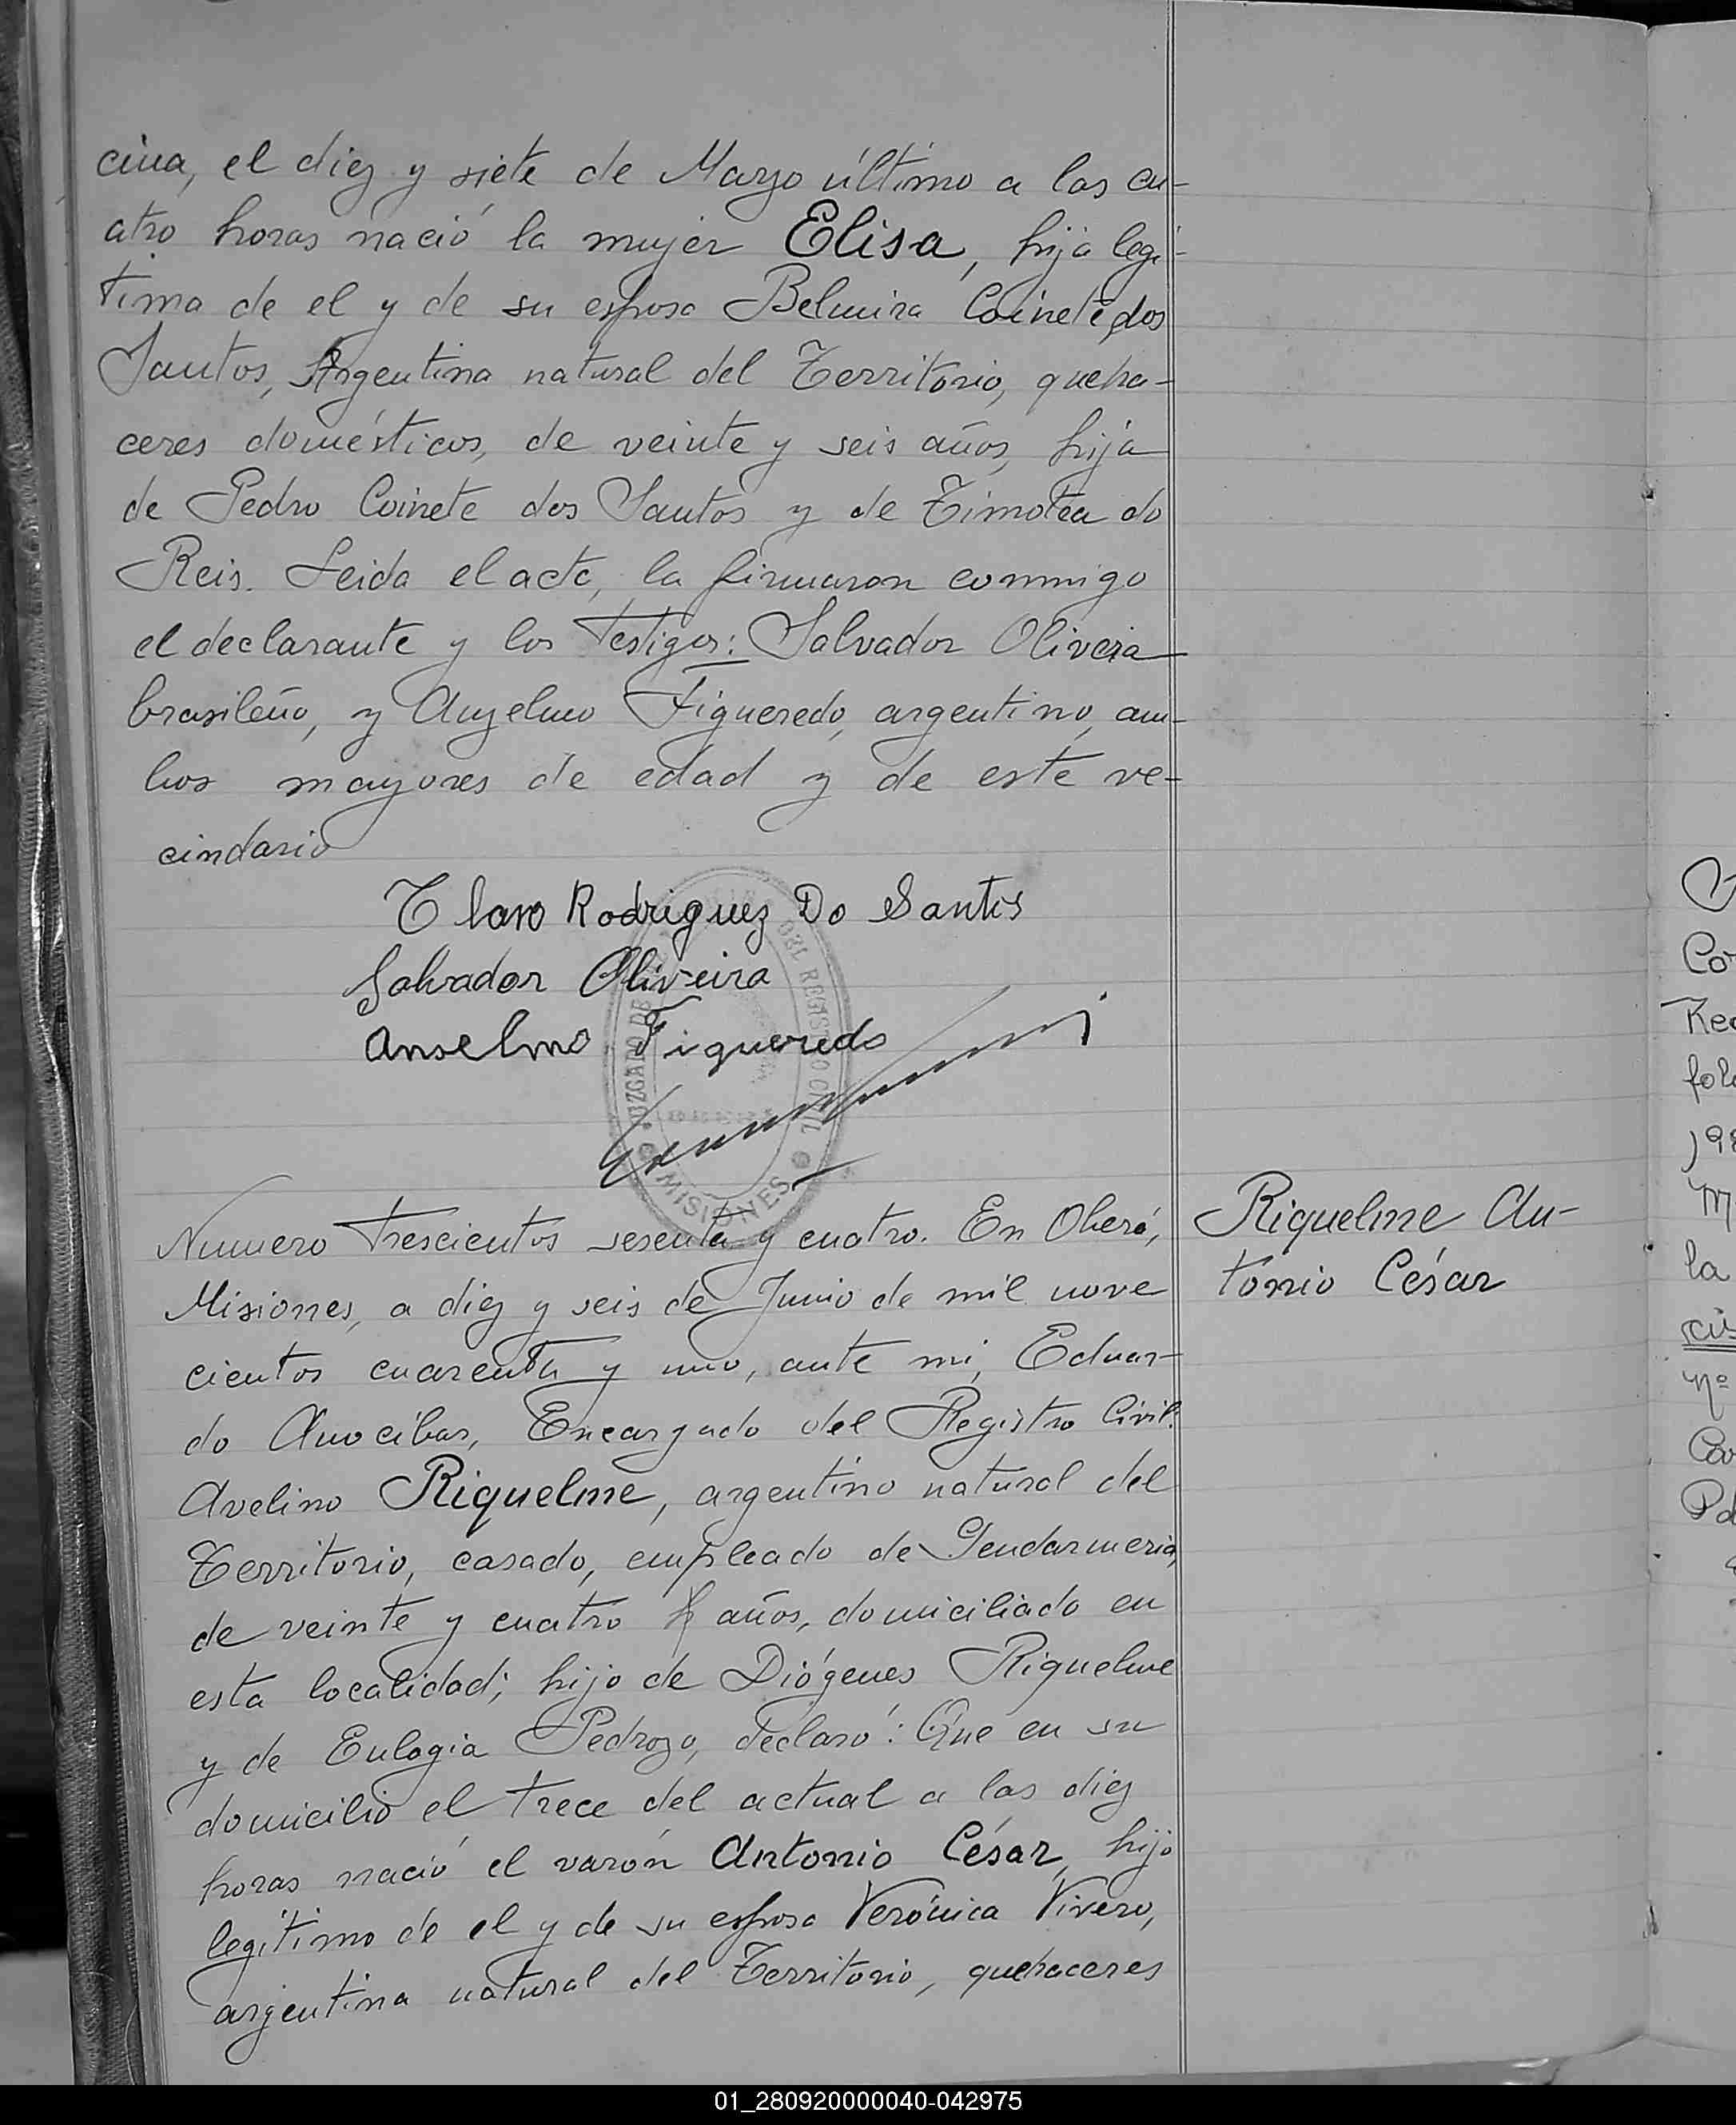 cina, el diez y siete de Marzo último a las cu-
atro horas nació la mujer Elisa, hija legí-
tima de el y de su esposa Belmira Coinete dos
Santos, Argentina natural del Territorio, queha-
ceres domésticos, de veinte y seis años, hija
de Pedro Coinete dos Santos y de Timotea do
Reis. Leida el acta, la firmaron conmigo
el declarante y los testigos: Salvador Oliveira
brasileño, y Anselmo Figueredo, argentino, am-
bos mayores de edad y de este ve-
cindario
Claro Rodriguez Do Santos
Salvador Oliveira
Anselmo Figueredo
JUZGADO DE DEL REGISTRO CIVIL
MISIONES
Numero trescientos sesenta y cuatro. En Oberá,
Misiones, a diez y seis de Junio de mil nove
cientos cuarenta y uno, ante mi, Eduar-
do Anocibar, Encargado del Registro Civil.
Avelino Riquelme, argentino natural del
Territorio, casado, empleado de Gendarmeria,
de veinte y cuatro años, domiciliado en
esta localidad; hijo de Diógenes Riquelme
y de Eulogia Pedrozo, declaró: Que en su
domicilio el trece del actual a las diez
horas nació el varón Antonio César, hijo
legítimo de el y de su esposa Verónica Vivero,
argentina natural del Territorio, quehaceres
Riquelme An-
tonio César
la
nº
01_280920000040-042975